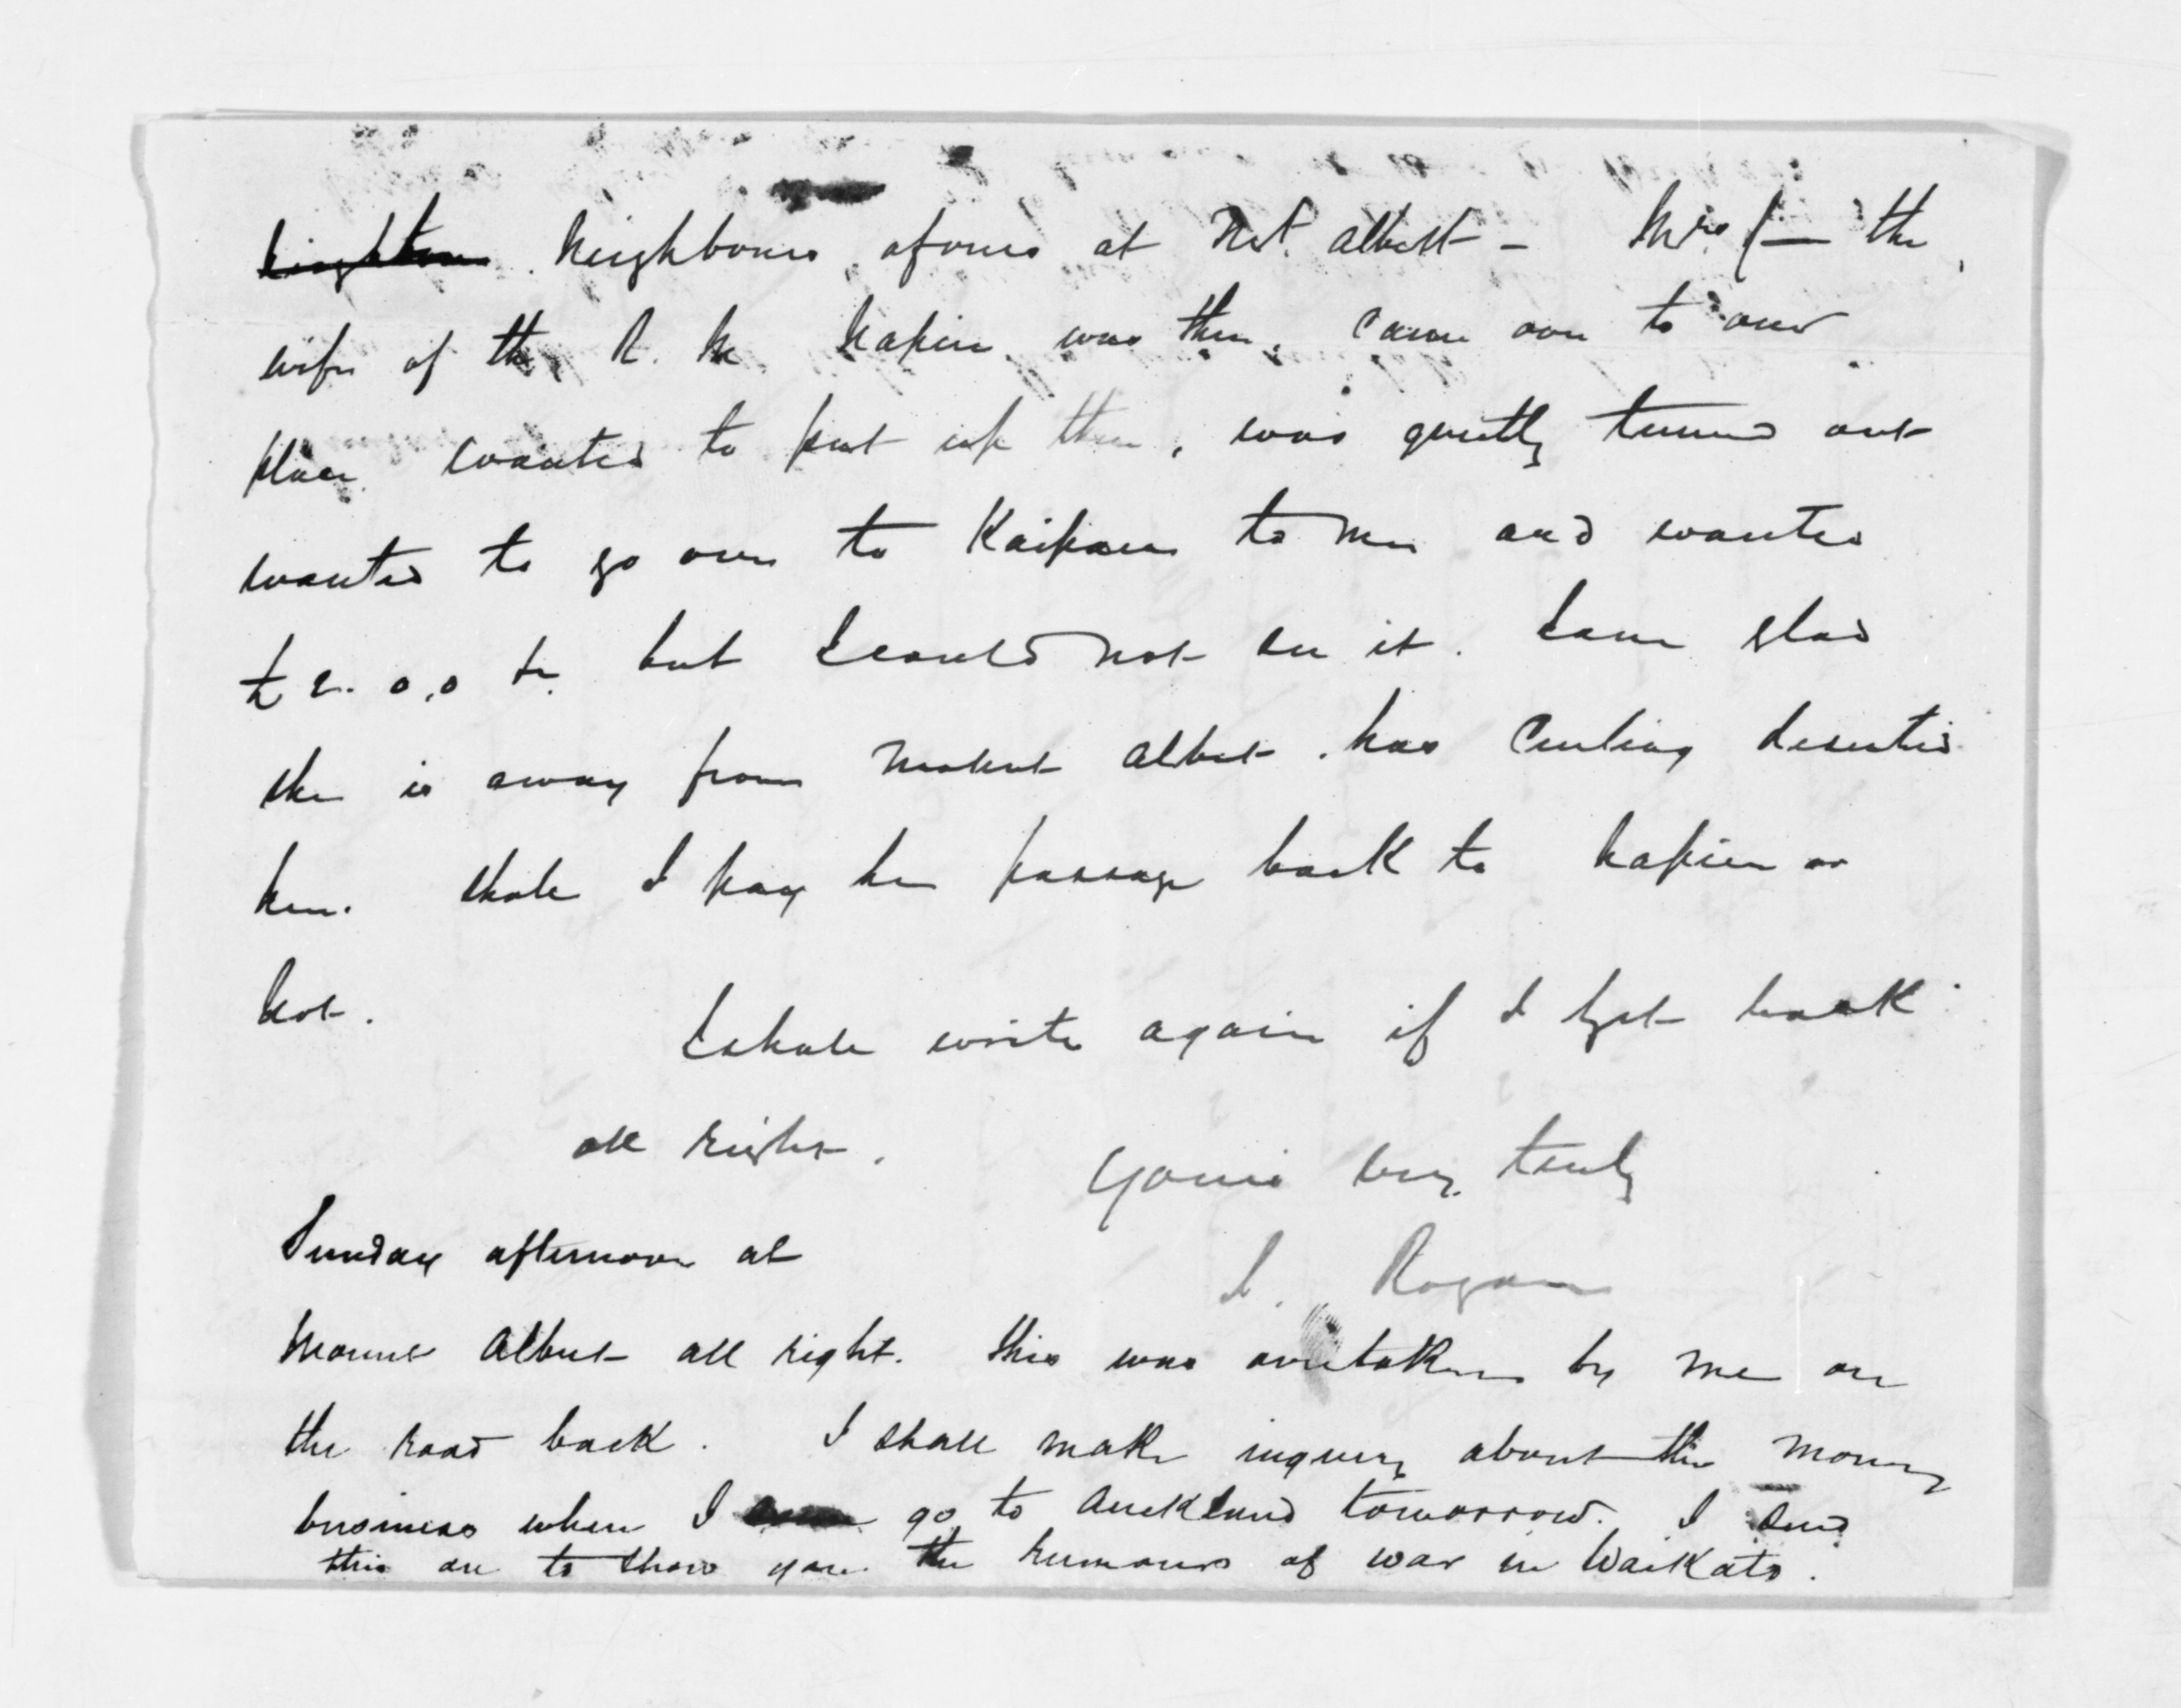 Neighbours Neighbours of ours at Mt. Albert – Mrs C— the
wife of the R. M. Napier was there, came over to our
place wanted to put up there, was quietly turned out
wanted to go over to Kaipara to me and wanted
but I could not see it. I am glad
she is away from Mount Albert. has Curling deserted
her. Shall I pay her passage back to Napier or
not.
I shall write again if I get back
all right.
Yours very truly
J. Rogan
Sunday afternoon at
Mount Albert all right. This was overtaken by me on
the road back. I shall make inquiry about the money
business when I go to Auckland tomorrow. I send
this on to show you the rumours of war in Waikato.